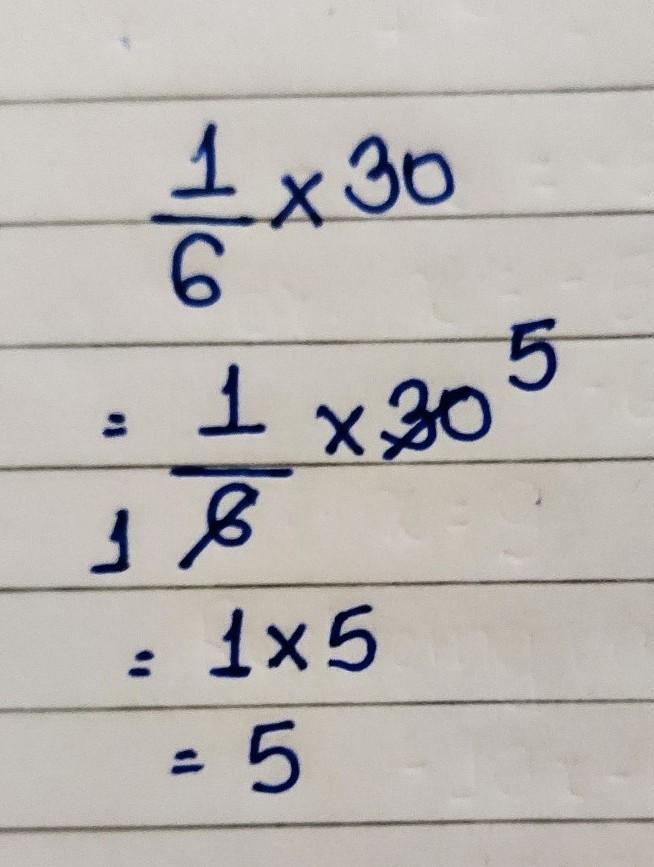 1/6 × 30
= 1/6 × 30 5
1
= 1 × 5
= 5